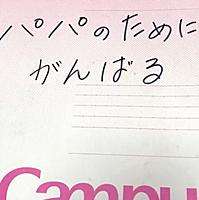 パパのために
がんばる
Campu